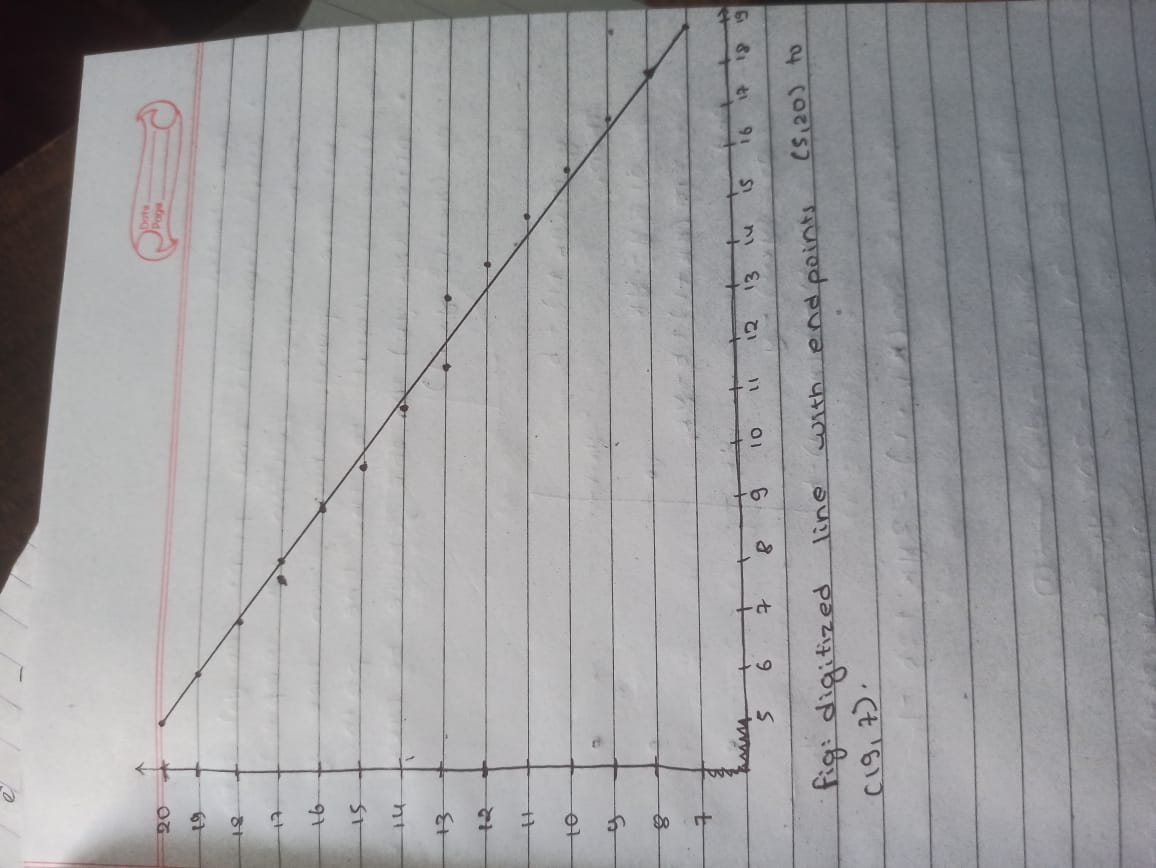 Date
Page
20
19
18
17
16
15
14
13
12
11
10
9
8
7
5 6 7 8 9 10 11 12 13 14 15 16 17 18 19
fig: digitized line with end points (5,20) to
(19,7).